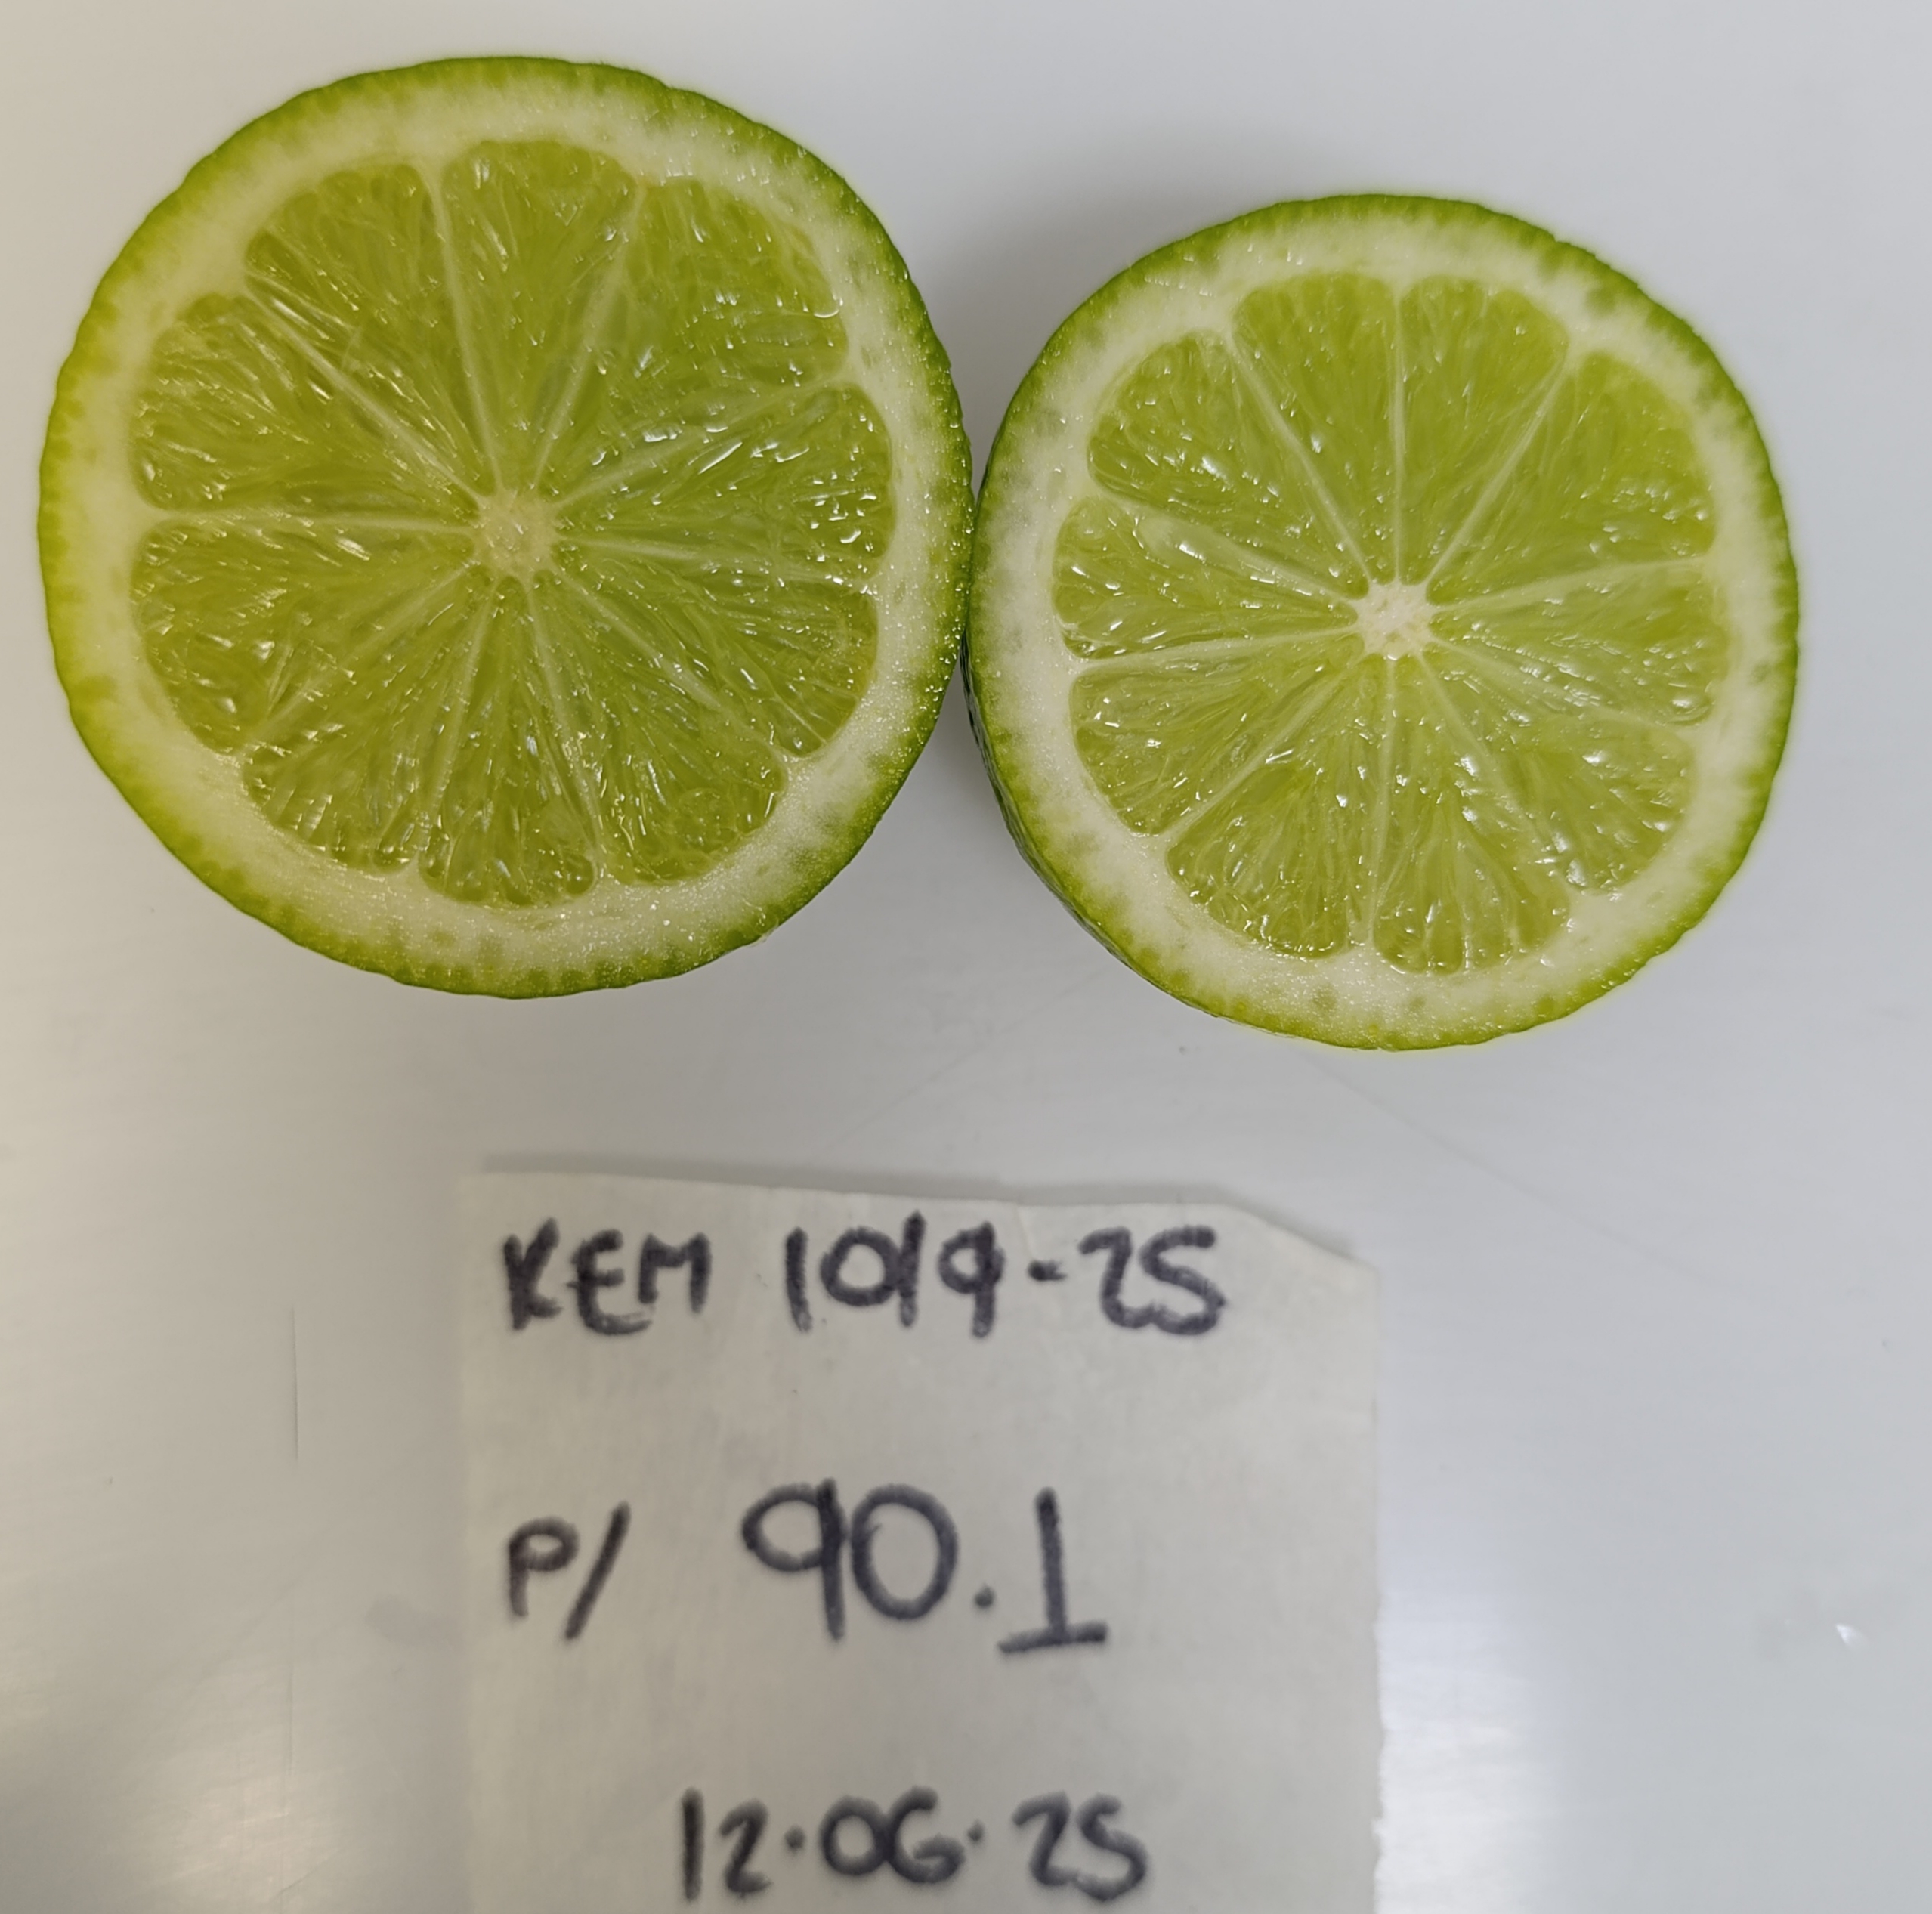 KEM 1019-25
P/ 90.1
12.06.25